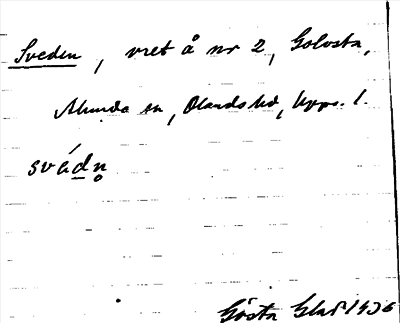 Sveden, vret å nr 2, Golvsta,
Alunda sn, Olands hd, Upps. l.
svédn̥
Gösta Glas 1936